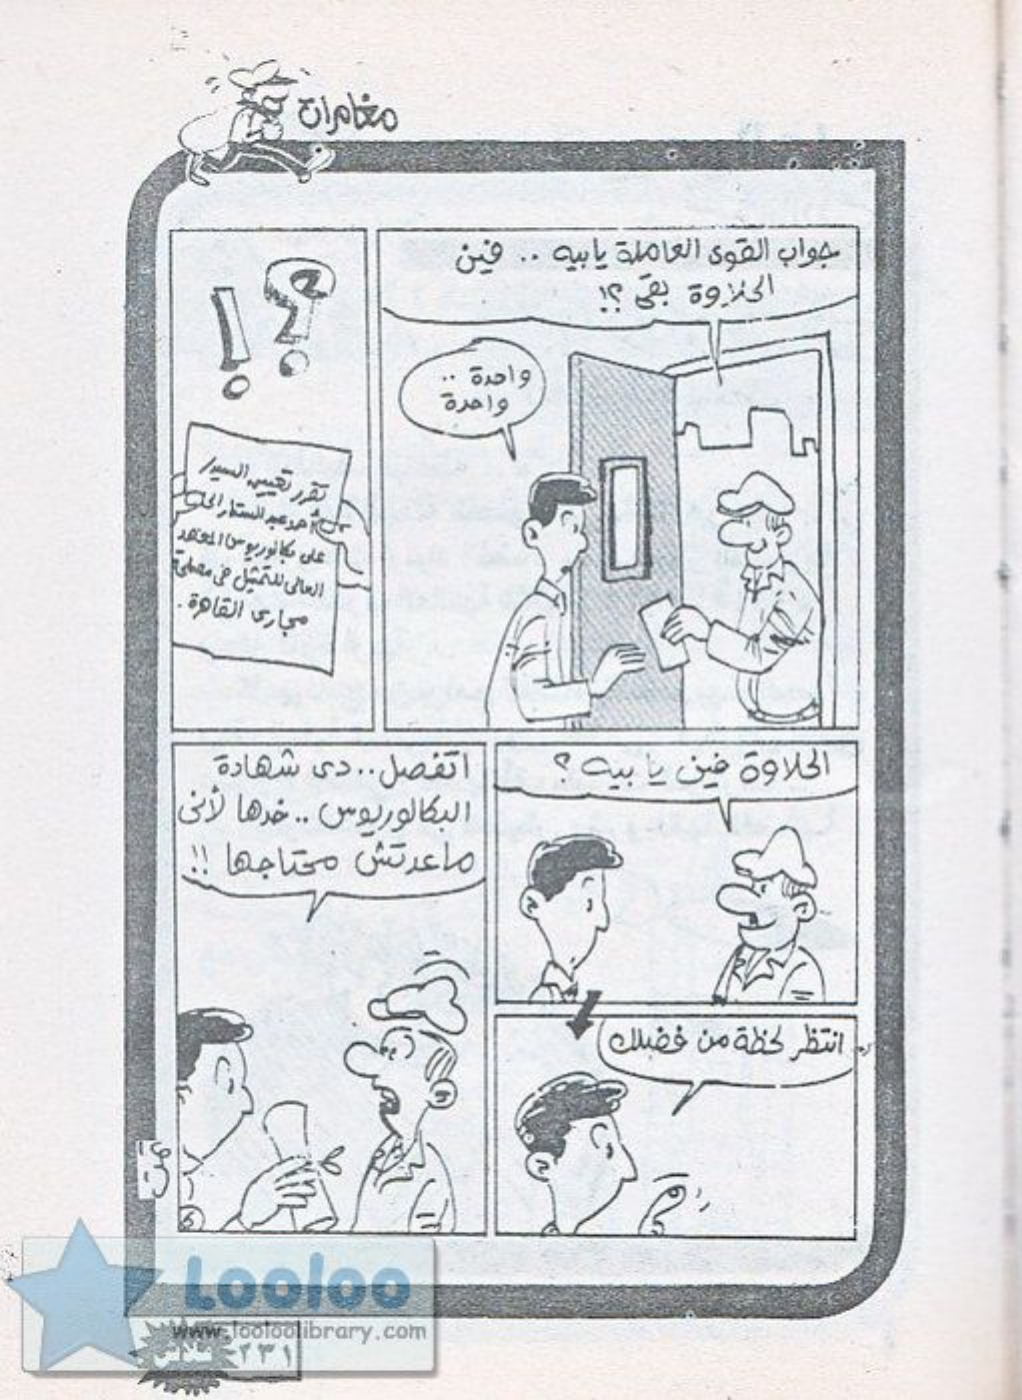 مغامرات
جواب القوى العاملة يابيه .. فين
الحلاوة بقى ؟!
واحدة ..
واحدة
؟!
تقرر تعيين السيد /
أحمد عبد الستار
على بكالوريوس المعهد
العالى للتمثيل فى مصلحة
مجارى القاهرة .
الحلاوة فين يا بيه ؟
انتظر لحظة من فضلك
اتفضل .. دى شهادة
البكالوريوس .. خدها لأنى
ماعدتش محتاجها !!
تمت
Looloo
www.looloolibrary.com
٢٣١ فلاش